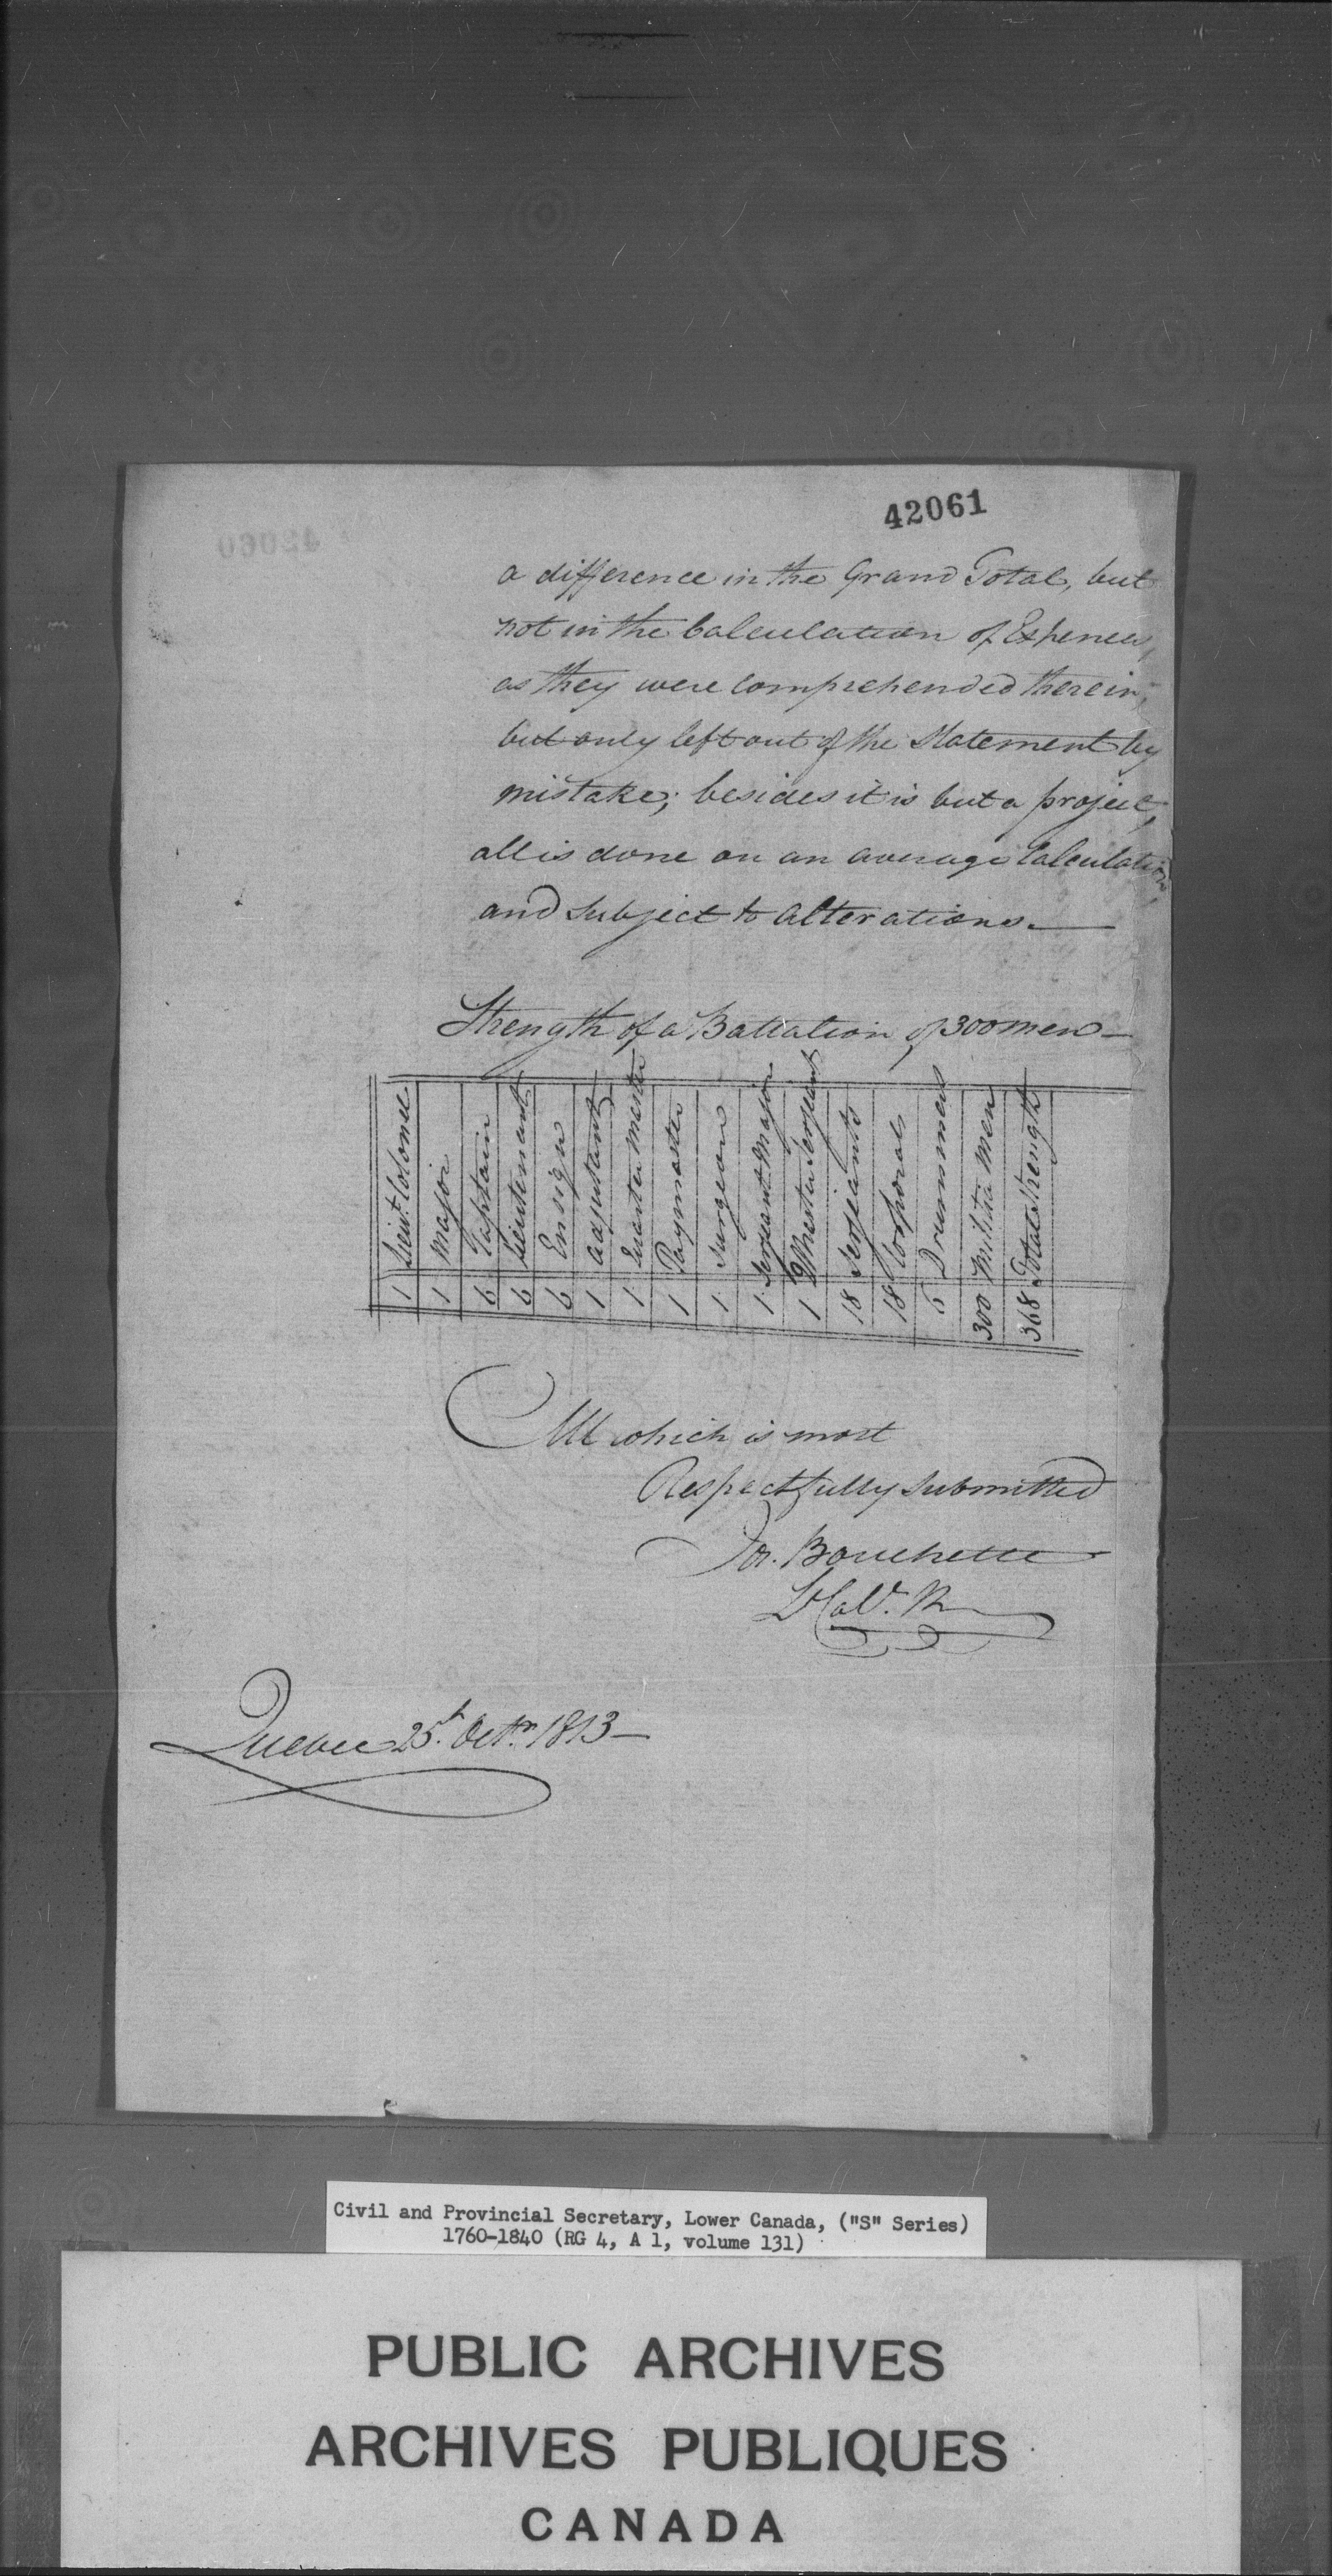 42061
a difference in the Grand Total, but
not in the Calculation of Expences,
as they were comprehended therein,
but only left out of the Statement by
mistake; besides it is but a project,
all is done on an average Calculation
and subject to alterations.
Strength of a Battalion of 300 men
1 Lieut. Colonel
1 Major
6 Captain
6 Lieutenant
6 Ensign
1 Adjutant
1 Quarter Master
1 Paymaster
1 Surgeon
1 Serjeant Major
1 Qr Master Serjeant
18 Serjeants
18 Corporals
6 Drummers
300 Militia Men
368 Total Strength
All which is most
Respectfully Submitted
Jos. Bouchette
Quebec 25t. Octr. 1813
Civil and Provincial Secretary, Lower Canada, ("S" Series)
1760-1840 (RG 4, A 1, volume 131)
PUBLIC ARCHIVES
ARCHIVES PUBLIQUES
CANADA